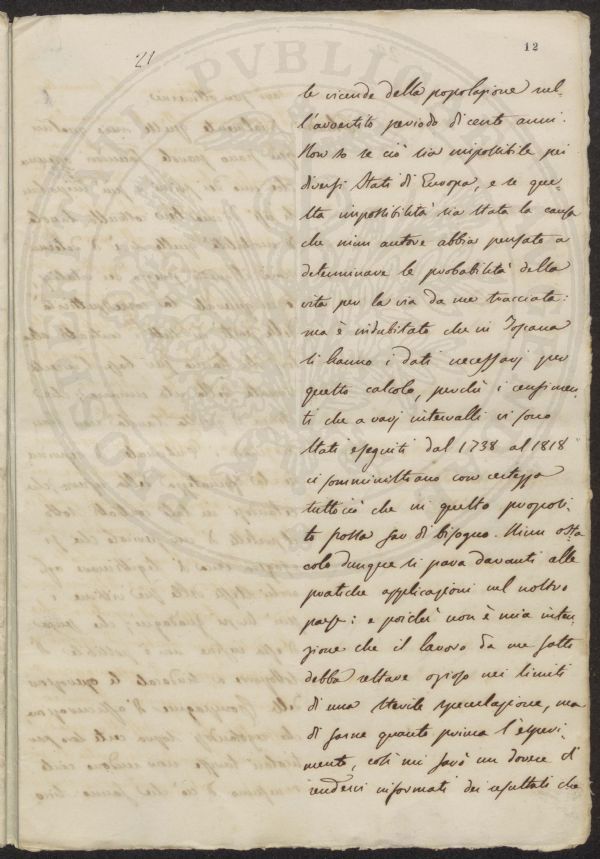 21
12
le vicende della popolazione nel-
l'avvertito periodo di cento anni.
Non so se ciò sia impossibile pei
diversi Stati di Europa, e se que-
sta impossibilità sia stata la causa
che niun autore abbia pensato a
determinare le probabilità della
vita per la via da me tracciata:
ma è indubitato che in Toscana
si hanno i dati necessarj per
questo calcolo, perchè i censimen-
ti che a varj intervalli vi sono
stati eseguiti dal 1738 al 1818
ci somministrano con certezza
tuttociò che in questo proposi-
to possa far di bisogno. Niun osta-
colo dunque si para davanti alle
pratiche applicazioni nel nostro
paese: e poichè non è mia inten-
zione che il lavoro da me fatto
debba restare ozioso nei limiti
di una sterile speculazione, ma
di farne quanto prima l'esperi-
mento, così mi farò un dovere di
rendervi informati dei resultati che